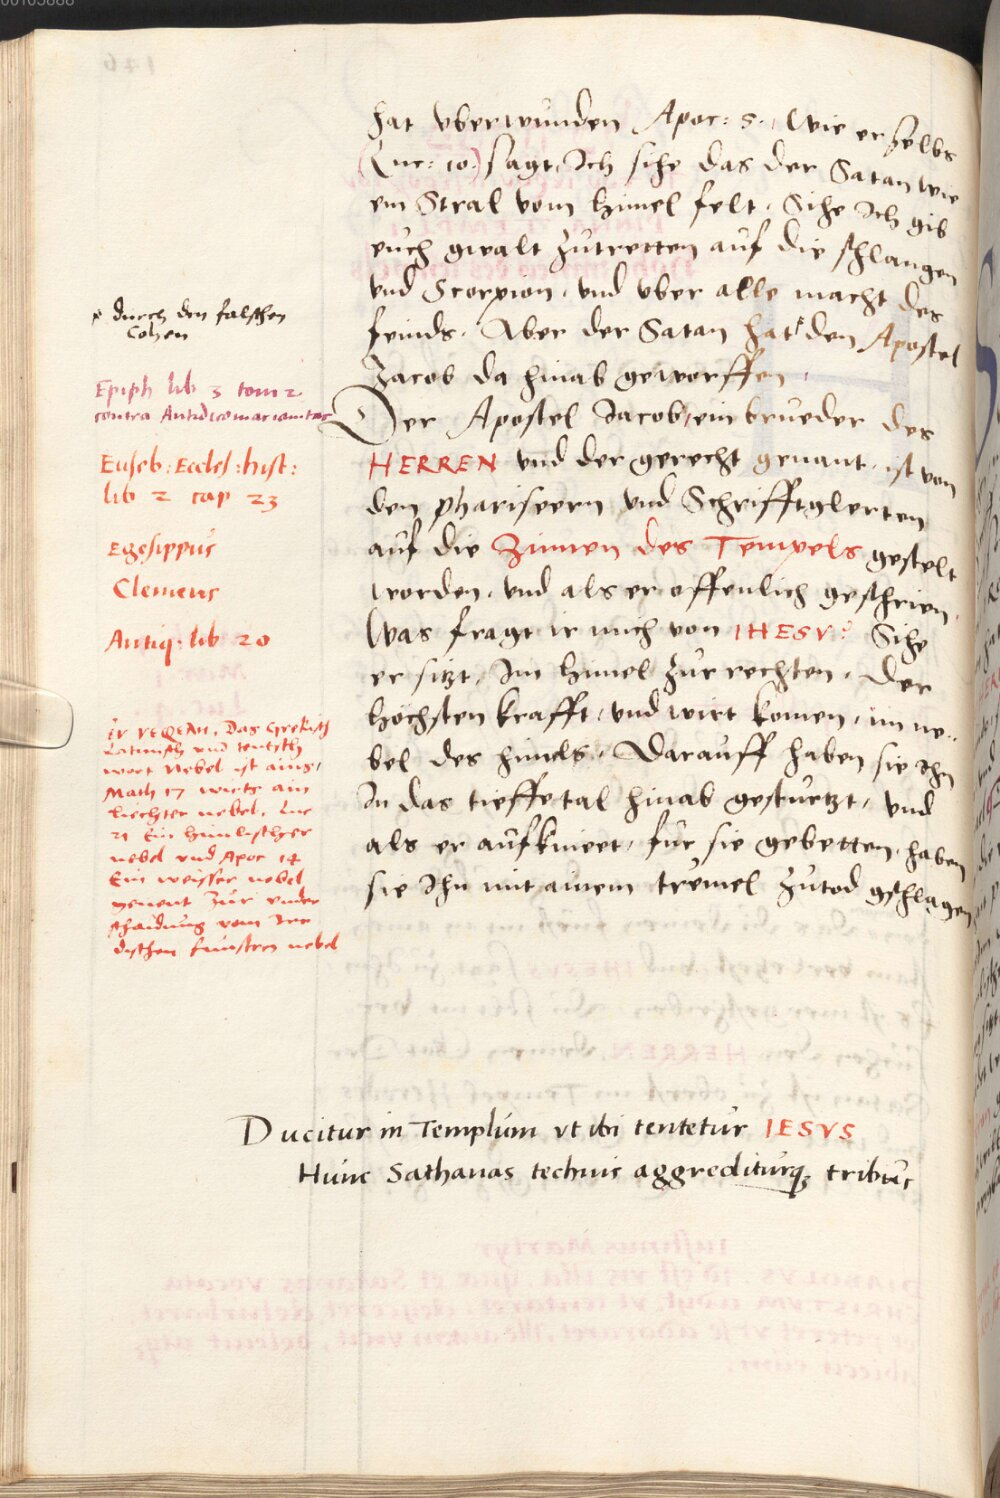 hat vberwunden Apoc: 5. Wie er selbs
(Luc: 10.) sagt, Ich sihe das der Satan wie
ein Stral vom himel felt. Sihe Ich gib
euch gwalt zutretten auf die schlangen
vnd Scorpion, vnd vber alle macht des
feinds. Aber der Satan hat den Apostel
Jacob da hinab geworffen.
Der Apostel Jacob, ein brueder des
HERREN vnd der gerecht genant, ist von
den phariseern vnd Schrifftglerten
auf die Zinnen des Tempels gestelt
worden, vnd als er offenlich geschrien,
Was fragt ir mich von IHESV? Sihe
er sitzt, Im himel zur rechten, Der
höchsten krafft, vnd wirt komen, im ne-
bel des himels. Darauff haben sie Ihn
In das tieffe tal hinab gesturtzt, vnd
als er aufkniet, für sie gebetten, haben
sie Ihn mit ainem tremel zutod gschlagen
durch den falschen
Cohen
Epiph lib 3 tom 2
contra Antidicomarianitas
Euseb: Eccles: hist:
lib 2 cap 23
Egesippus
Clemens
Antiq. lib 20
Das Grekisch
Latinisch vnd teutsch
wort Nebel ist ains,
Math 17 wirts ain
liechter nebel, Luc
21 Ein himlischer
nebel vnd Apoc 14
Ein weisser nebel
genent zur vnder
schaidung vom Irr
dischen finstren nebel
Ducitur in Templum vt ibi tentetur IESVS
Hunc Sathanas technis aggrediturq; tribus